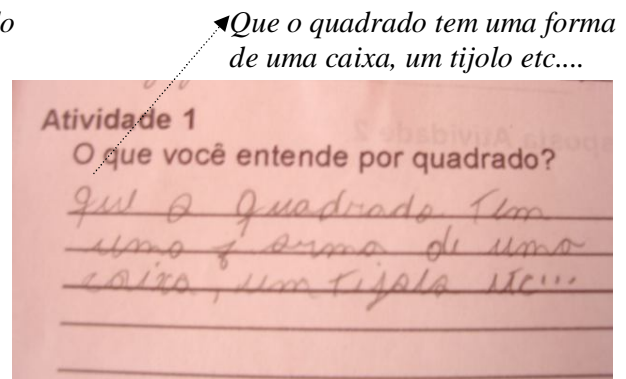 lo
Que o quadrado tem uma forma
de uma caixa, um tijolo etc....
Atividade 1
O que você entende por quadrado?
que o quadrado tem
uma forma de uma
caixa, um tijolo etc...